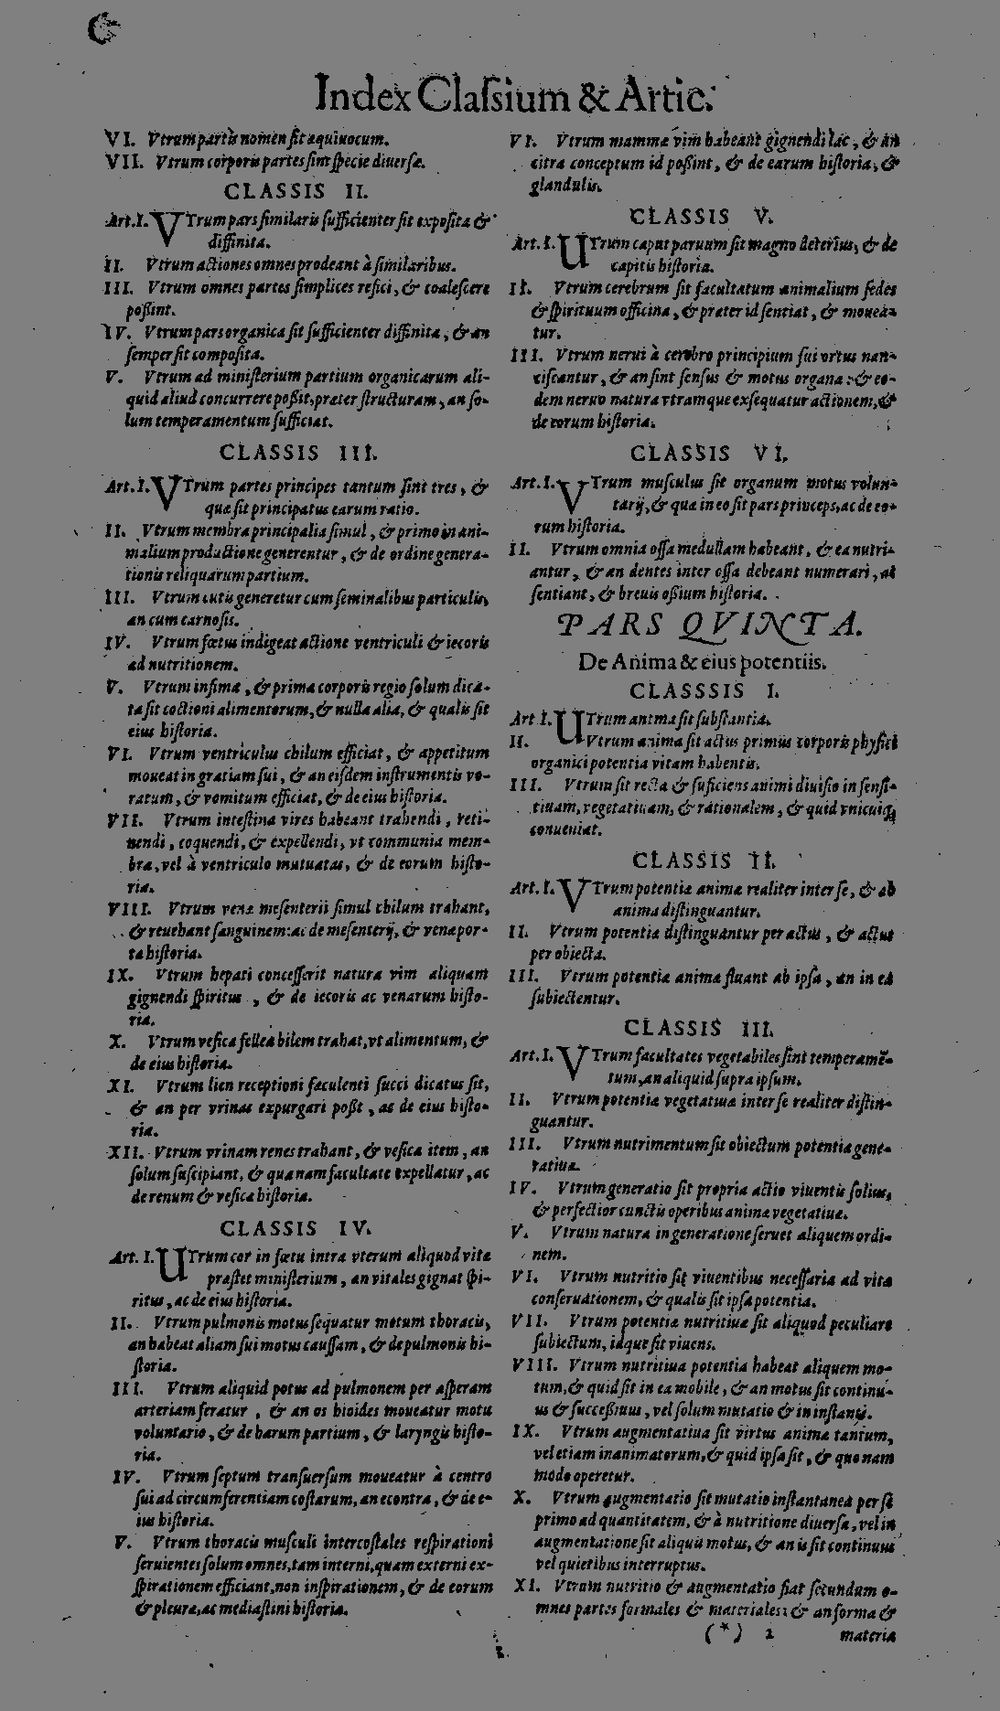 Index Claſsium & Artic.
VI. Vtrum partis nomen ſit æquiuocum.
VII. Vtrum corporis partes ſint ſpecie diuerſæ.
CLASSIS II.
Art.I. VTrum pars ſimilaris ſufficienter ſit expoſita &
diffinita.
II. Vtrum actiones omnes prodeant à ſimilaribus.
III. Vtrum omnes partes ſimplices refici, & coaleſcere
poſſint.
IV. Vtrum pars organica ſit ſufficienter diffinita, & an
ſemper ſit compoſita.
V. Vtrum ad miniſterium partium organicarum ali-
quid aliud concurrere poßit, præter ſtructuram, an ſo-
lum temperamentum ſufficiat.
CLASSIS III.
Art.I. VTrum partes principes tantum ſint tres, &
quæ ſit principatus earum ratio.
II. Vtrum membra principalia ſimul, & primo in ani-
malium productione generentur, & de ordine genera-
tionis reliquarum partium.
III. Vtrum cutis generetur cum ſeminalibus particulis,
an cum carnoſis.
IV. Vtrum fœtus indigeat actione ventriculi & iecoris
ad nutritionem.
V. Vtrum infima, & prima corporis regio ſolum dica-
ta ſit coctioni alimentorum, & nulla alia, & qualis ſit
eius hiſtoria.
VI. Vtrum ventriculus chilum efficiat, & appetitum
moueat in gratiam ſui, & an eiſdem inſtrumentis vo-
ratum, & vomitum efficiat, & de eius hiſtoria.
VII. Vtrum inteſtina vires habeant trahendi, reti-
nendi, coquendi, & expellendi, vt communia mem-
bra, vel à ventriculo mutuatas, & de eorum hiſto-
ria.
VIII. Vtrum venæ meſenterii ſimul chilum trahant,
& reuehant ſanguinem: ac de meſenterij, & venæ por-
ta hiſtoria.
IX. Vtrum hepati conceſſerit natura vim aliquam
gignendi ſpiritus, & de iecoris ac venarum hiſto-
ria.
X. Vtrum veſica fellea bilem trahat, vt alimentum, &
de eius hiſtoria.
XI. Vtrum lien receptioni fæculenti ſucci dicatus ſit,
& an per vrinas expurgari poßt, ac de eius hiſto-
ria.
XII. Vtrum vrinam renes trahant, & veſica item, an
ſolum ſuſcipiant, & quanam facultate expellatur, ac
de renum & veſicæ hiſtoria.
CLASSIS IV.
Art. I. UTrum cor in fœtu intra vterum aliquod vitæ
præſtet miniſterium, an vitales gignat ſpi-
ritus, ac de eius hiſtoria.
II. Vtrum pulmonis motus ſequatur motum thoracis,
an habeat aliam ſui motus cauſſam, & de pulmonis hi-
ſtoria.
III. Vtrum aliquid potus ad pulmonem per aſperam
arteriam feratur, & an os hioides moueatur motu
voluntario, & de harum partium, & laryngis hiſto-
ria.
IV. Vtrum ſeptum tranſuerſum moueatur à centro
ſui ad circumferentiam coſtarum, an econtra, & de e-
ius hiſtoria.
V. Vtrum thoracis muſculi intercoſtales reſpirationi
ſeruientes ſolum omnes, tam interni, quam externi ex-
ſpirationem efficiant, non inſpirationem, & de eorum
& pleuræ, ac mediaſtini hiſtoria.
VI. Vtrum mammæ vim habeant gignendi lac, & an
citra conceptum id poßint, & de earum hiſtoria, &
glandulis.
CLASSIS V.
Art.I. UTrum caput paruum ſit magno deterius, & de
capitis hiſtoria.
II. Vtrum cerebrum ſit facultatum animalium ſedes
& ſpirituum officina, & præter id ſentiat, & mouea-
tur.
III. Vtrum nerui à cerebro principium ſui ortus nan-
ciſcantur, & an ſint ſenſus & motus organa: & eo-
dem neruo natura vtramque exſequatur actionem, &
de eorum hiſtoria.
CLASSIS VI.
Art.I. VTrum muſculus ſit organum motus volun-
tarij, & quæ in eo ſit pars princeps, ac de eo-
rum hiſtoria.
II. Vtrum omnia oſſa medullam habeant, & ea nutri-
antur, & an dentes inter oſſa debeant numerari, ac
ſentiant, & breuis oßium hiſtoria.
PARS QVINTA.
De Anima & eius potentiis.
CLASSSIS I.
Art I. UTrum anima ſit ſubſtantia.
II. Vtrum anima ſit actus primus corporis phyſici
organici potentia vitam habentis.
III. Vtrum ſit recta & ſuficiens animi diuiſio in ſenſi-
tiuam, vegetatiuam, & rationalem, & quid vnicuiq;
conueniat.
CLASSIS II.
Art. I. VTrum potentiæ animæ realiter inter ſe, & ab
anima diſtinguantur.
II. Vtrum potentiæ diſtinguantur per actus, & actus
per obiecta.
III. Vtrum potentiæ animæ fluant ab ipſa, an in ea
ſubiectentur.
CLASSIS III.
Art. I. VTrum facultates vegetabiles ſint temperamē-
tum, an aliquid ſupra ipſum.
II. Vtrum potentiæ vegetatiuæ inter ſe realiter diſtin-
guantur.
III. Vtrum nutrimentum ſit obiectum potentiæ gene-
ratiuæ.
IV. Vtrum generatio ſit propria actio viuentis ſolius,
& perfectior cunctis operibus animæ vegetatiuæ.
V. Vtrum natura in generatione ſeruet aliquem ordi-
nem.
VI. Vtrum nutritio ſit viuentibus neceſſaria ad vitæ
conſeruationem, & qualis ſit ipſa potentia.
VII. Vtrum potentiæ nutritiuæ ſit aliquod peculiare
ſubiectum, idque ſit viuens.
VIII. Vtrum nutritiua potentia habeat aliquem mo-
tum, & quid ſit in ea mobile, & an motus ſit continu-
us & ſucceßiuus, vel ſolum mutatio & in inſtanti.
IX. Vtrum augmentatiua ſit virtus animæ tantum,
vel etiam inanimatorum, & quid ipſa ſit, & quo nam
modo operetur.
X. Vtrum augmentatio ſit mutatio inſtantanea per ſe
primo ad quantitatem, & à nutritione diuerſa, vel in
augmentatione ſit aliquis motus, & an is ſit continuus
vel quietibus interruptus.
XI. Vtrum nutritio & augmentatio fiat ſecundum o-
mnes partes formales & materiales: & an forma &
(*) 2 materia